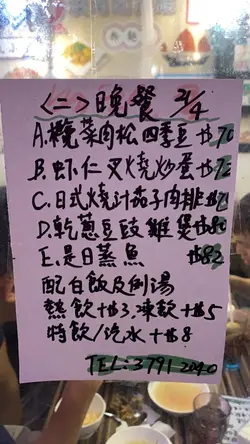 〈二〉晚餐 21/4
A.欖菜肉松四季豆 $70
B.虾仁叉燒炒蛋 $72
C.日式燒汁茄子肉排
D.乾蔥豆豉雞煲 $80
E.是日蒸魚 $82
配白飯及例湯
熱飲+$3,凍飲+$5
特飲/汽水+$8
TEL:3791 2040